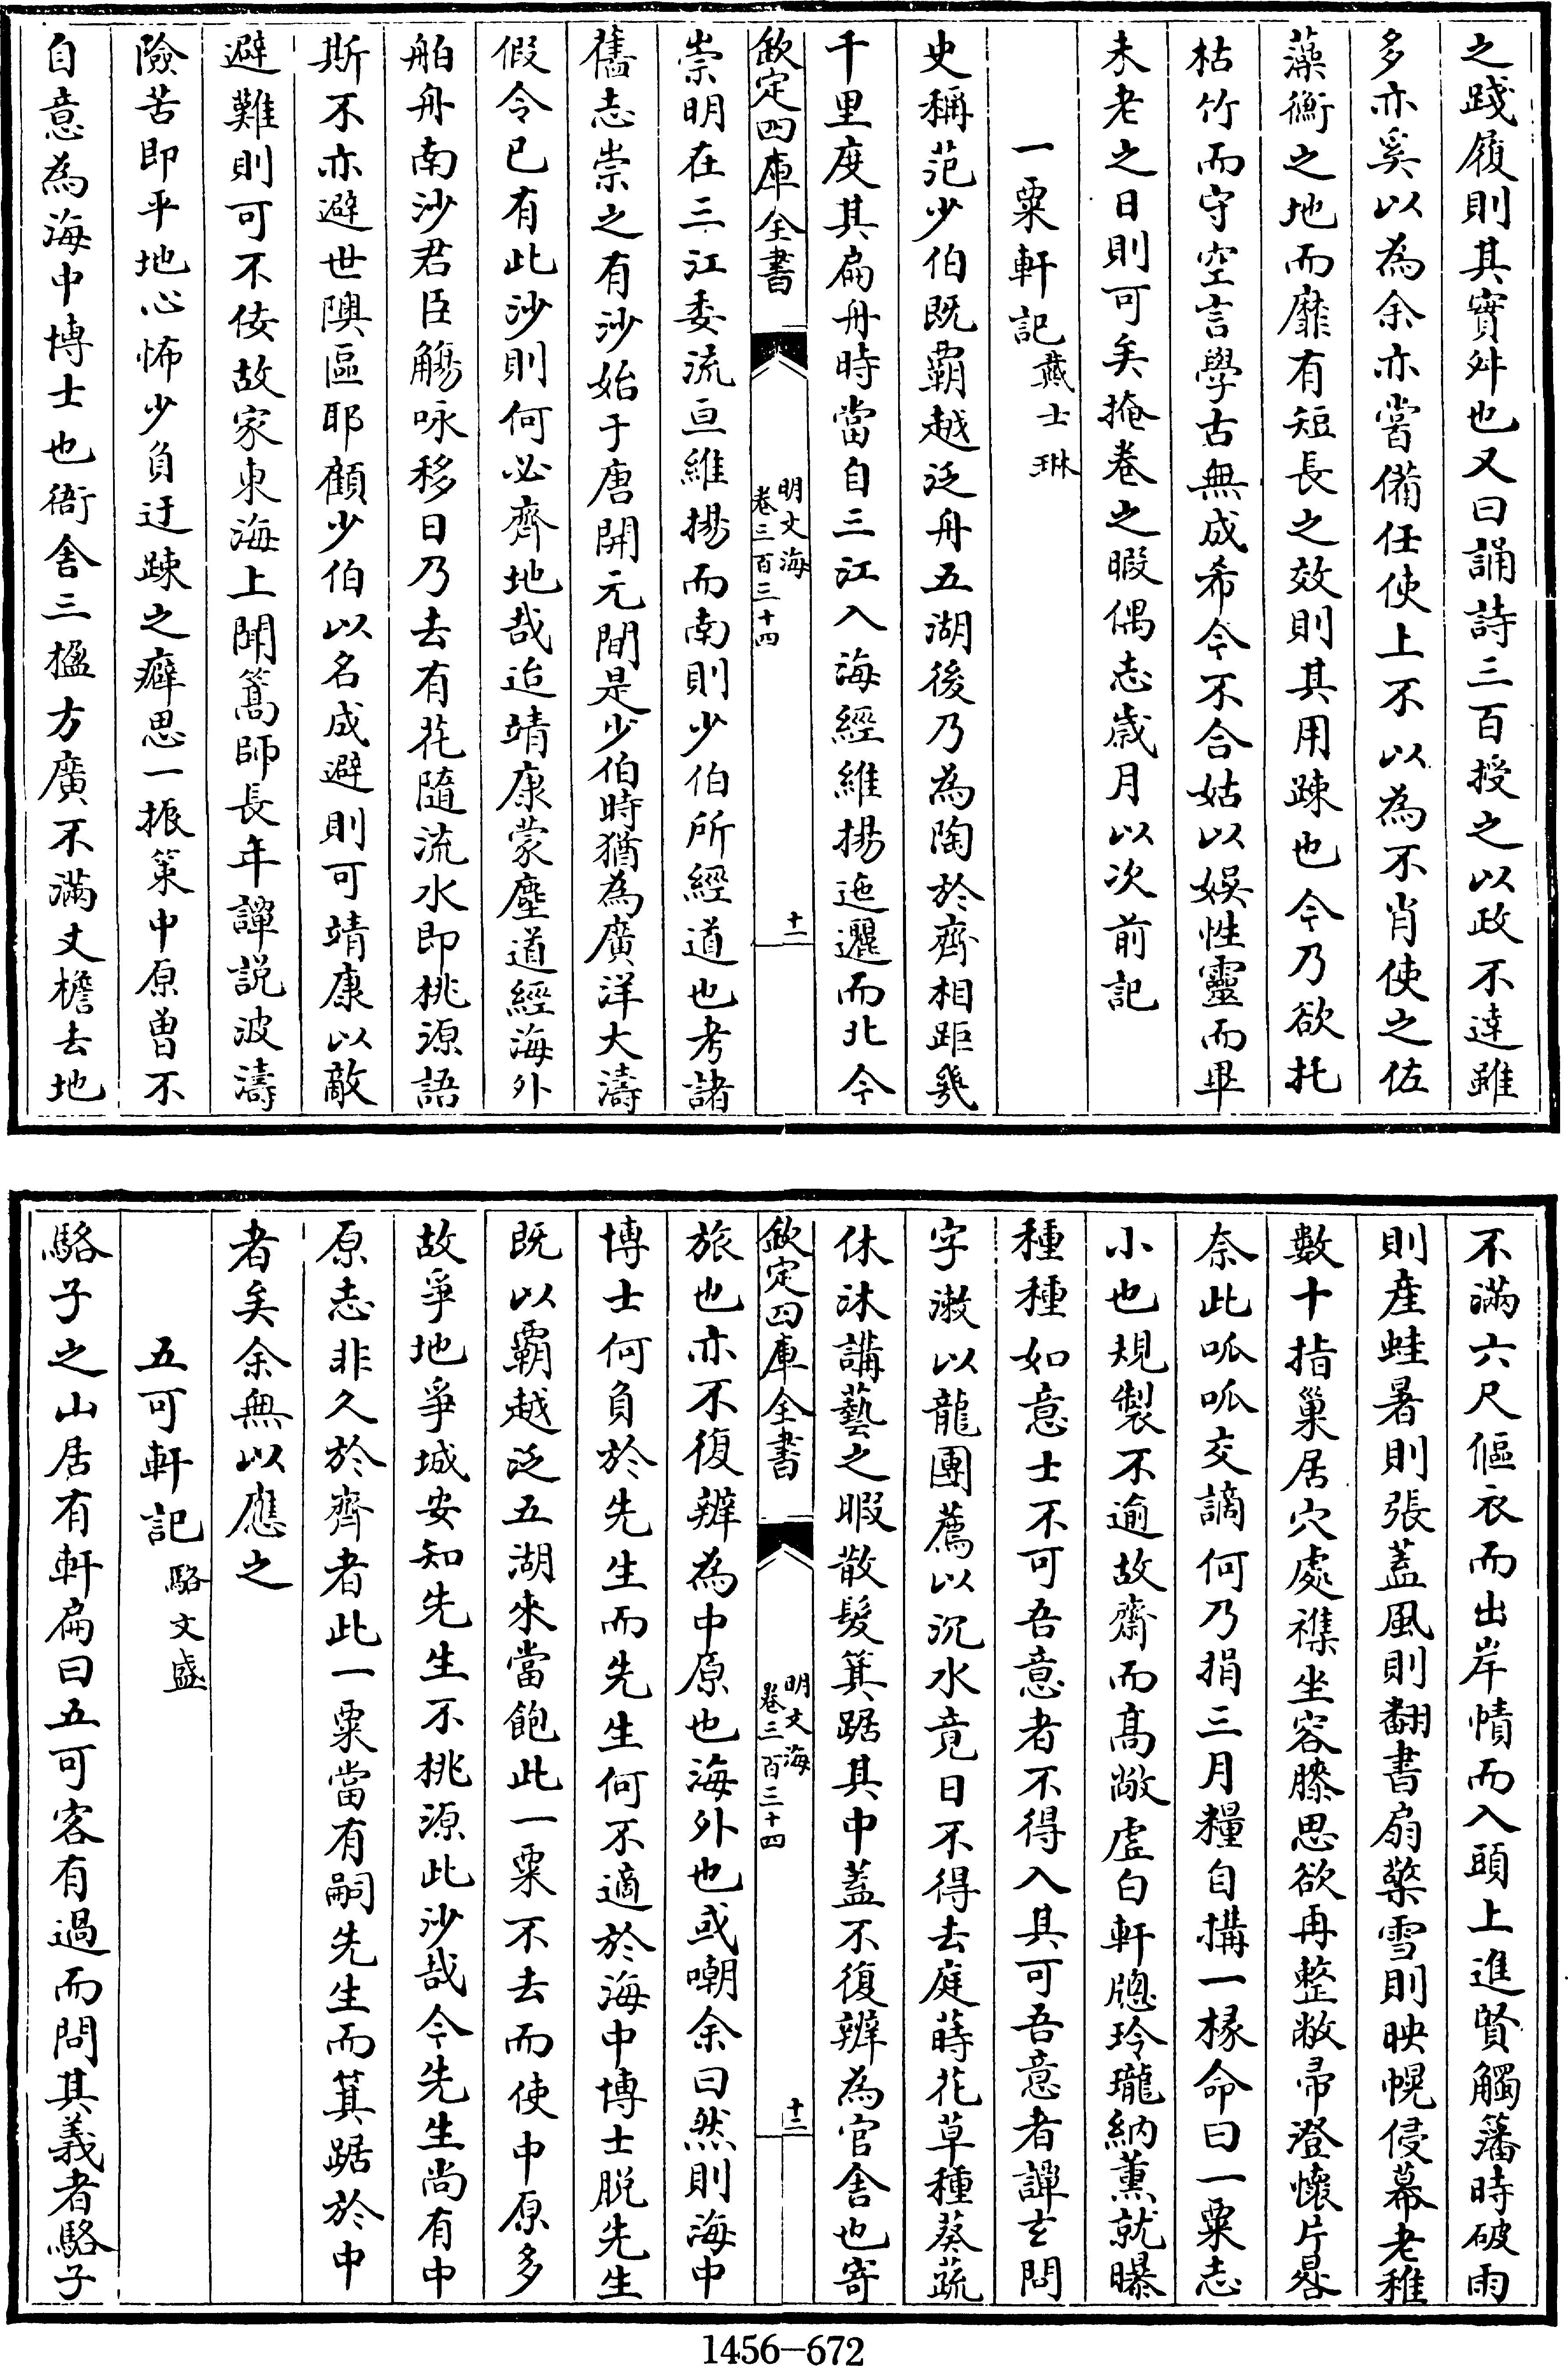 之踐履則其實舛也又曰誦詩三百授之以政不達雖
多亦奚以為余亦嘗備任使上不以為不肖使之佐
藻衡之地而靡有短長之效則其用踈也今乃欲托
枯竹而守空言學古無成希今不合姑以娛性靈而畢
未老之日則可矣掩卷之暇偶志歲月以次前記
一粟軒記 戴士琳
史稱范少伯既覇越泛舟五湖後乃為陶於齊相距幾
千里度其扁舟時當自三江入海經維揚迤邐而北今
欽定四庫全書 明文海 卷三百三十四 十一
崇明在三江委流亘維揚而南則少伯所經道也考諸
舊志崇之有沙始于唐開元間是少伯時猶為廣洋大濤
假令已有此沙則何必齊地哉迨靖康蒙塵道經海外
舶舟南沙君臣觴咏移日乃去有花隨流水即桃源語
斯不亦避世隩區耶顧少伯以名成避則可靖康以敵
避難則可不佞故家東海上聞篙師長年譚説波濤
險苦即平地心怖少負迂踈之癖思一振策中原曾不
自意為海中博士也衙舍三楹方廣不滿丈檐去地
不滿六尺傴衣而出岸幘而入頭上進賢觸籓時破雨
則產蛙暑則張蓋風則翻書扇檠雪則映幌侵幕老稚
數十指巢居穴處襍坐容膝思欲再整敝帚澄懷片晷
奈此呱呱交謫何乃捐三月糧自搆一椽命曰一粟志
小也規製不逾故齋而髙敞虛白軒牕玲瓏納薰就曝
種種如意士不可吾意者不得入其可吾意者譚𤣥問
字漱以龍團薦以沉水竟日不得去庭蒔花草種葵蔬
休沐講藝之暇散髮箕踞其中蓋不復辨為官舍也寄
欽定四庫全書 明文海 卷三百三十四 十二
旅也亦不復辨為中原也海外也或嘲余曰然則海中
博士何負於先生而先生何不適於海中博士脱先生
既以覇越泛五湖來當飽此一粟不去而使中原多
故爭地爭城安知先生不桃源此沙哉今先生尚有中
原志非久於齊者此一粟當有嗣先生而箕踞於中
者矣余無以應之
五可軒記 駱文盛
駱子之山居有軒扁曰五可客有過而問其義者駱子
1456-672